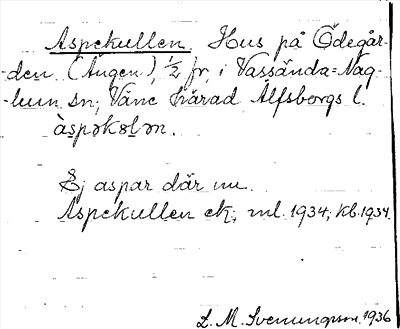 Aspekullen. Hus på Ödegår-
den (Ängen), 1/2 fr, i Vassända=Nag-
lum sn, Väne härad Älfsborgs l.
àspəkɵlən.
Ej aspar där nu.
Aspekullen ek; ml. 1934; kb. 1934.
L. M. Svenungsson. 1936